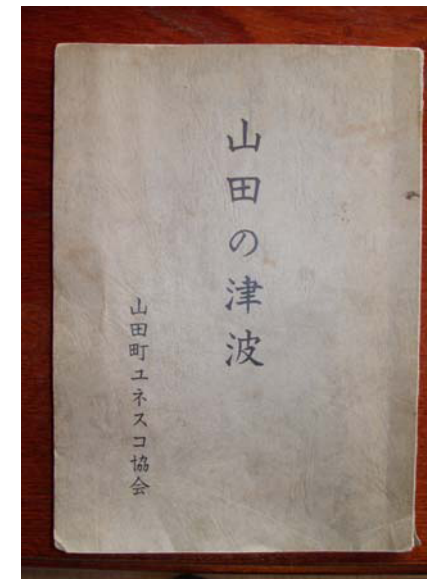 山田の津波
山田町ユネスコ協会